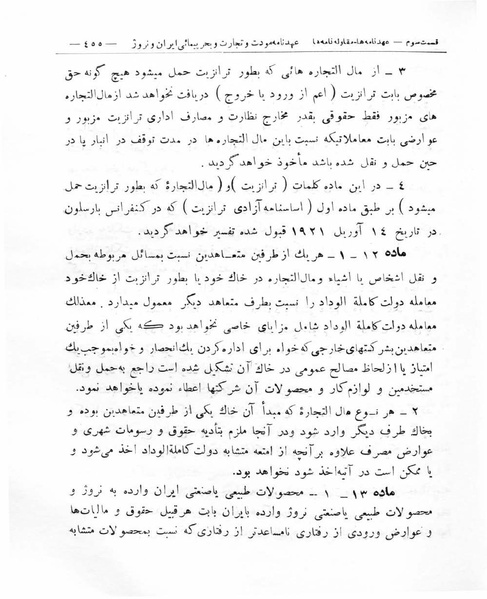 قسمت سوم — عهدنامه‌ها، مقاوله نامه‌ها عهدنامه مودت و تجارت و بحر پیمائی ایران و نروژ — ٤٥٥ —
٣ — از مال التجاره هائی که بطور ترانزیت حمل میشود هیچ گونه حق
مخصوص بابت ترانزیت ( اعم از ورود یا خروج ) دریافت نخواهد شد ازمال‌التجاره
های مزبور فقط حقوقی بقدر مخارج نظارت و مصارف اداری ترانزیت مزبور و
عوارضی بابت معاملاتیکه نسبت باین مال التجاره ها در مدت توقف در انبار یا در
حین حمل و نقل شده باشد مأخوذ خواهد گردید .
٤ — در این ماده کلمات ( ترانزیت ) و ( مال‌التجارهٔ که بطور ترانزیت حمل
میشود ) بر طبق ماده اول ( اساسنامه آزادی ترانزیت ) که در کنفرانس بارسلون
در تاریخ ١٤ آوریل ١٩٢١ قبول شده تفسیر خواهد گردید.
ماده ١٢ — ١ — هر یك از طرفین متعاهدین نسبت بمسائل مربوطه بحمل
و نقل اشخاص یا اشیاء ومال‌التجاره در خاك خود یا بطور ترانزیت از خاك‌خود
معامله دولت کاملة الوداد را نسبت بطرف متعاهد دیگر معمول میدارد . معذلك
معامله دولت کاملة الوداد شامل مزایای خاصی نخواهد بود که یکی از طرفین
متعاهدین بشرکتهای خارجی که خواه برای اداره کردن یك انحصار و خواه بموجب یك
امتیاز یا ازلحاظ مصالح عمومی در خاك آن تشکیل شده است راجع به‌حمل ونقل
مستخدمین و لوازم کار و محصولات آن شرکتها اعطاء نموده یاخواهد نمود.
٢ — هر نوع مال التجارهٔ که مبدأ آن خاك یکی از طرفین متعاهدین بوده و
بخاك طرف دیگر وارد شود ودر آنجا ملزم بتأدیه حقوق و رسومات شهری و
عوارض مصرف علاوه بر آنچه از امتعه مشابه دولت کاملة‌الوداد اخذ می‌شود و
یا ممکن است در آتیه‌اخذ شود نخواهد بود.
ماده ١٣ — ١ — محصولات طبیعی یاصنعتی ایران وارده به نروژ و
محصولات طبیعی یاصنعتی نروژ وارده بایران بابت هرقبیل حقوق و مالیات‌ها
و عوارض ورودی از رفتاری نامساعدتر از رفتاری‌که نسبت بمحصولات متشابه